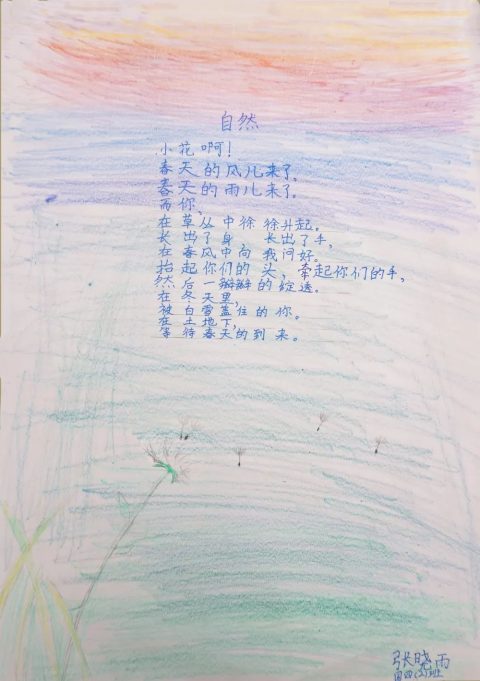 自然
小花啊！
春天的风儿来了，
春天的雨儿来了。
而你，
在草丛中徐徐升起。
长出了身 长出了手，
在春风中向我问好。
抬起你们的头，牵起你们的手，
然后一瓣瓣的绽透。
在冬天里，
被白雪盖住的你。
在土地下，
等待春天的到来。
张晓雨
四(2)班